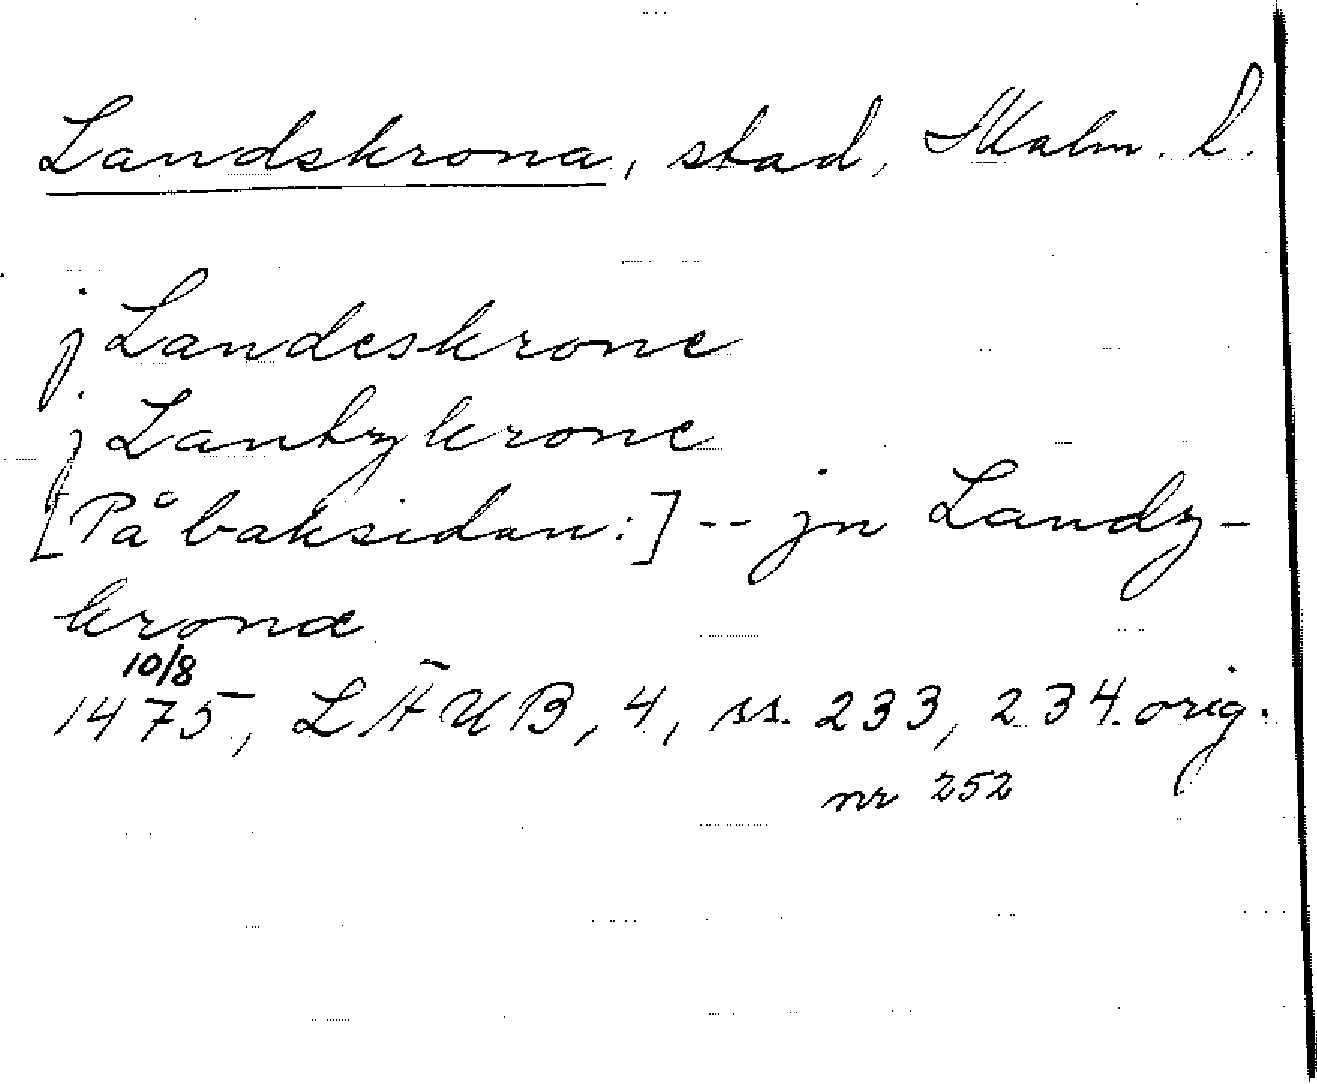 Landskrona, stad, Malm. l.
j Landeskrone
j Lantzkrone
[På baksidan:] -- jn Landz-
kronæ
10/8
1475, LÄUB, 4, ss. 233, 234. orig.
nr 252